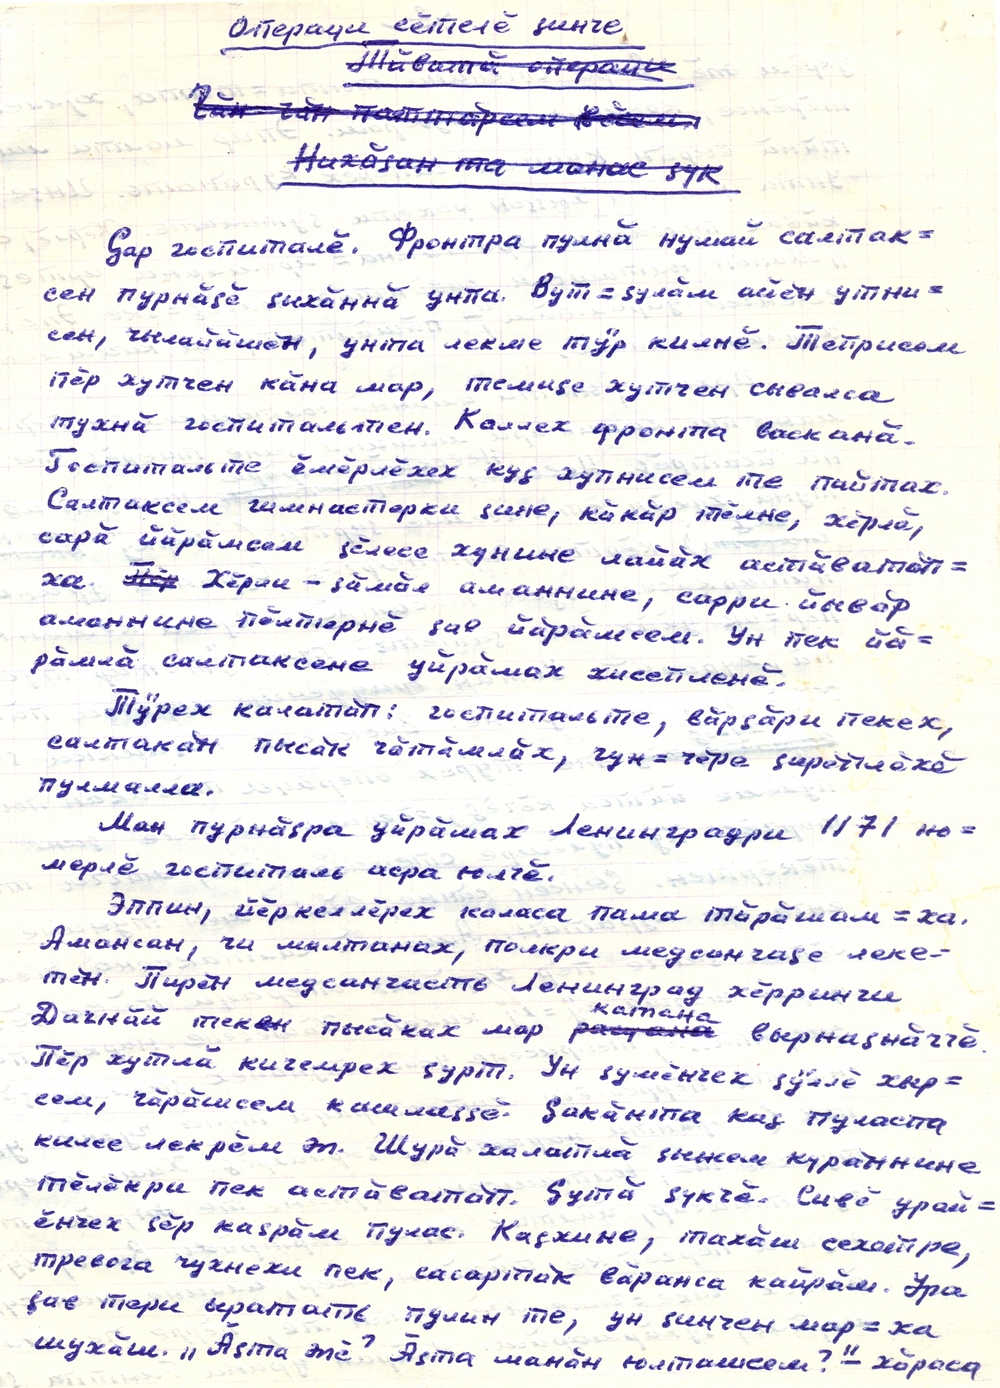 Операци сӗтелӗ ҫинче
Тӑватӑ операци
Чӑн-чӑн паттӑрсем
Нихӑҫан та манас ҫук
Ҫар госпиталӗ. Фронтра пулнӑ нумай салтак=
сен пурнӑҫӗ ҫыхӑннӑ унпа. Вут=ҫулӑм айӗн утни=
сен, чылайӑшӗн, унта лекме тӳр килнӗ. Теприсем
пӗр хутчен кӑна мар, темиҫе хутчен сывалса
тухнӑ госпитальтен. Каллех фронта васканӑ.
Госпитальте ӗмӗрлӗхех куҫ хупнисем те пайтах.
Салтаксем гимнастерки ҫине, кӑкӑр тӗлне, хӗрлӗ,
сарӑ йӑрӑмсем ҫӗлесе хунине лайӑх астӑватӑп=
ха. Пӗр Хӗрли – ҫӑмӑл аманнине, сарри йывӑр
аманнине пӗлтернӗ ҫав йӑрӑмсем. Ун пек йӑ=
рӑмлӑ салтаксене уйрӑмах хисепленӗ.
Тӳрех калатӑп: госпитальте, вӑрҫӑри пекех,
салтакӑн пысӑк чӑтӑмлӑх, чун=чӗре ҫирӗплӗхӗ
пулмалла.
Ман пурнӑҫра уйрӑмах Ленинградри 1171 но=
мерлӗ госпиталь асра юлчӗ.
Эппин, йӗркеллӗрех каласа пама тӑрӑшам=ха.
Амансан, чи малтанах, полкри медсанчаҫе леке-
тӗн. Пирӗн медсанчасть Ленинград хӗрринчи
Дачнӑй текен пысӑках мар катана вырнаҫнӑччӗ.
Пӗр хутлӑ кичемрех ҫурт. Ун ҫумӗнчех ҫӳллӗ хыр=
сем, чӑрӑшсем кашлаҫҫӗ. Ҫакӑнта каҫ пуласпа
килсе лекрӗм эп. Шурӑ халатлӑ ҫынсем курӑннине
тӗлӗкри пек астӑватӑп. Ҫутӑ ҫукчӗ. Сивӗ урай=
ӗнчех ҫӗр каҫрӑм пулас. Каҫхине, тахӑш сехетре,
тревога чухнехи пек, сасартӑк вӑранса кайрӑм. Ура
ҫав тери ыратать пулин те, ун ҫинчен мар=ха
шухӑш. „Ӑҫта эпӗ? Ӑҫта манӑн юлташсем?" – хӑраса